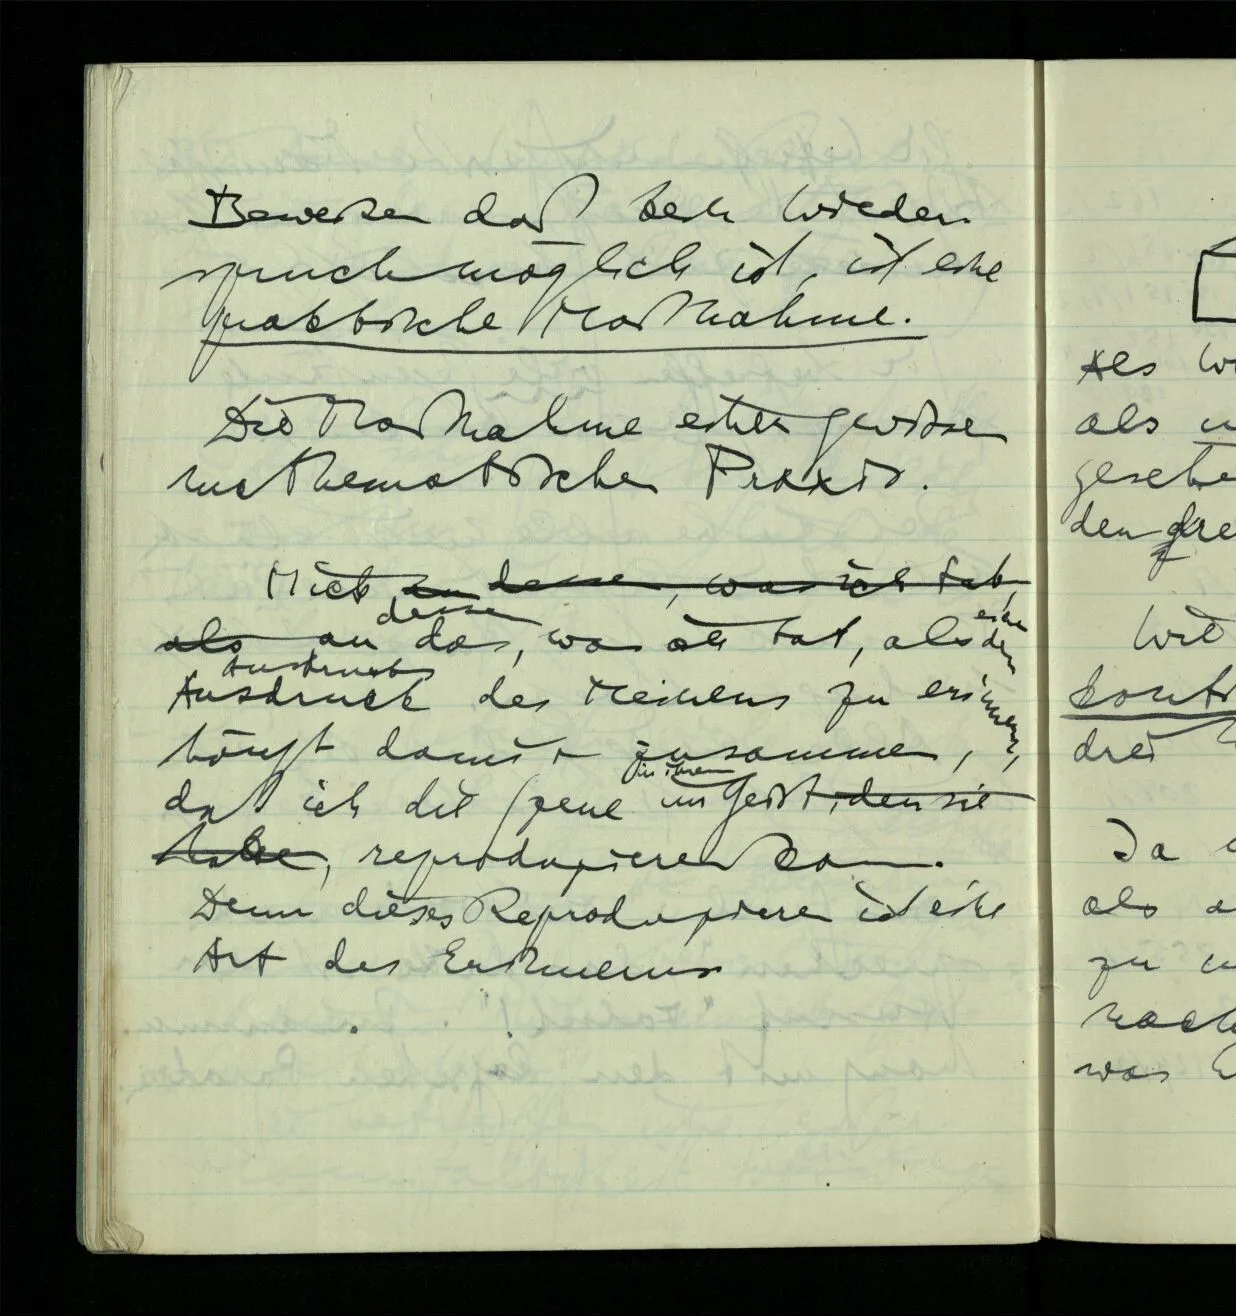 Beweisen daß kein Wieder-
spruch möglich ist, ist eine
praktische Maßnahme.
Die Maßnahme einer gewissen
mathematischen Praxis.
Mich an dessen, was ich tat,
dessen
als an das, was ich tat, als einen den
Ausdrucks
Ausdruck des Meinens zu erinnern,
hängt damit zusammen,
in ihrem
daß ich die Szene im Geist, den sie
habe, reproduzieren kann.
Denn dieses Reproduzieren ist eine
Art des Erinnerns
Als
als
den
Wie
drei
Da
als
zu
nach
was